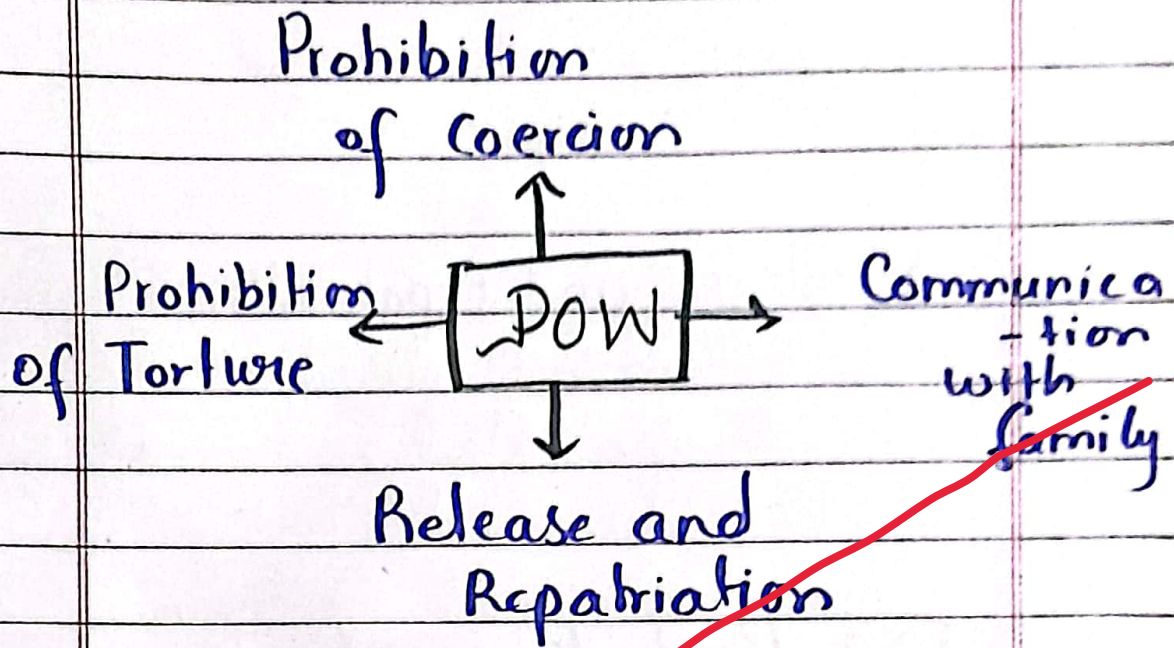 Prohibition
of Coercion
Prohibition
of Torture
POW
Communica
-tion
with
family
Release and
Repatriation